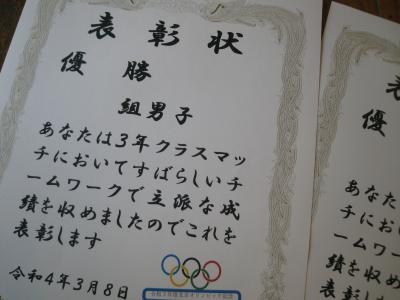 表彰状
優勝
組男子
あなたは3年クラスマッ
チにおいてすばらしいチ
ームワークで立派な成
績を収めましたのでこれを
表彰します
令和4年3月8日
表
優
あなた
チにお
ームワ
績を収
表彰